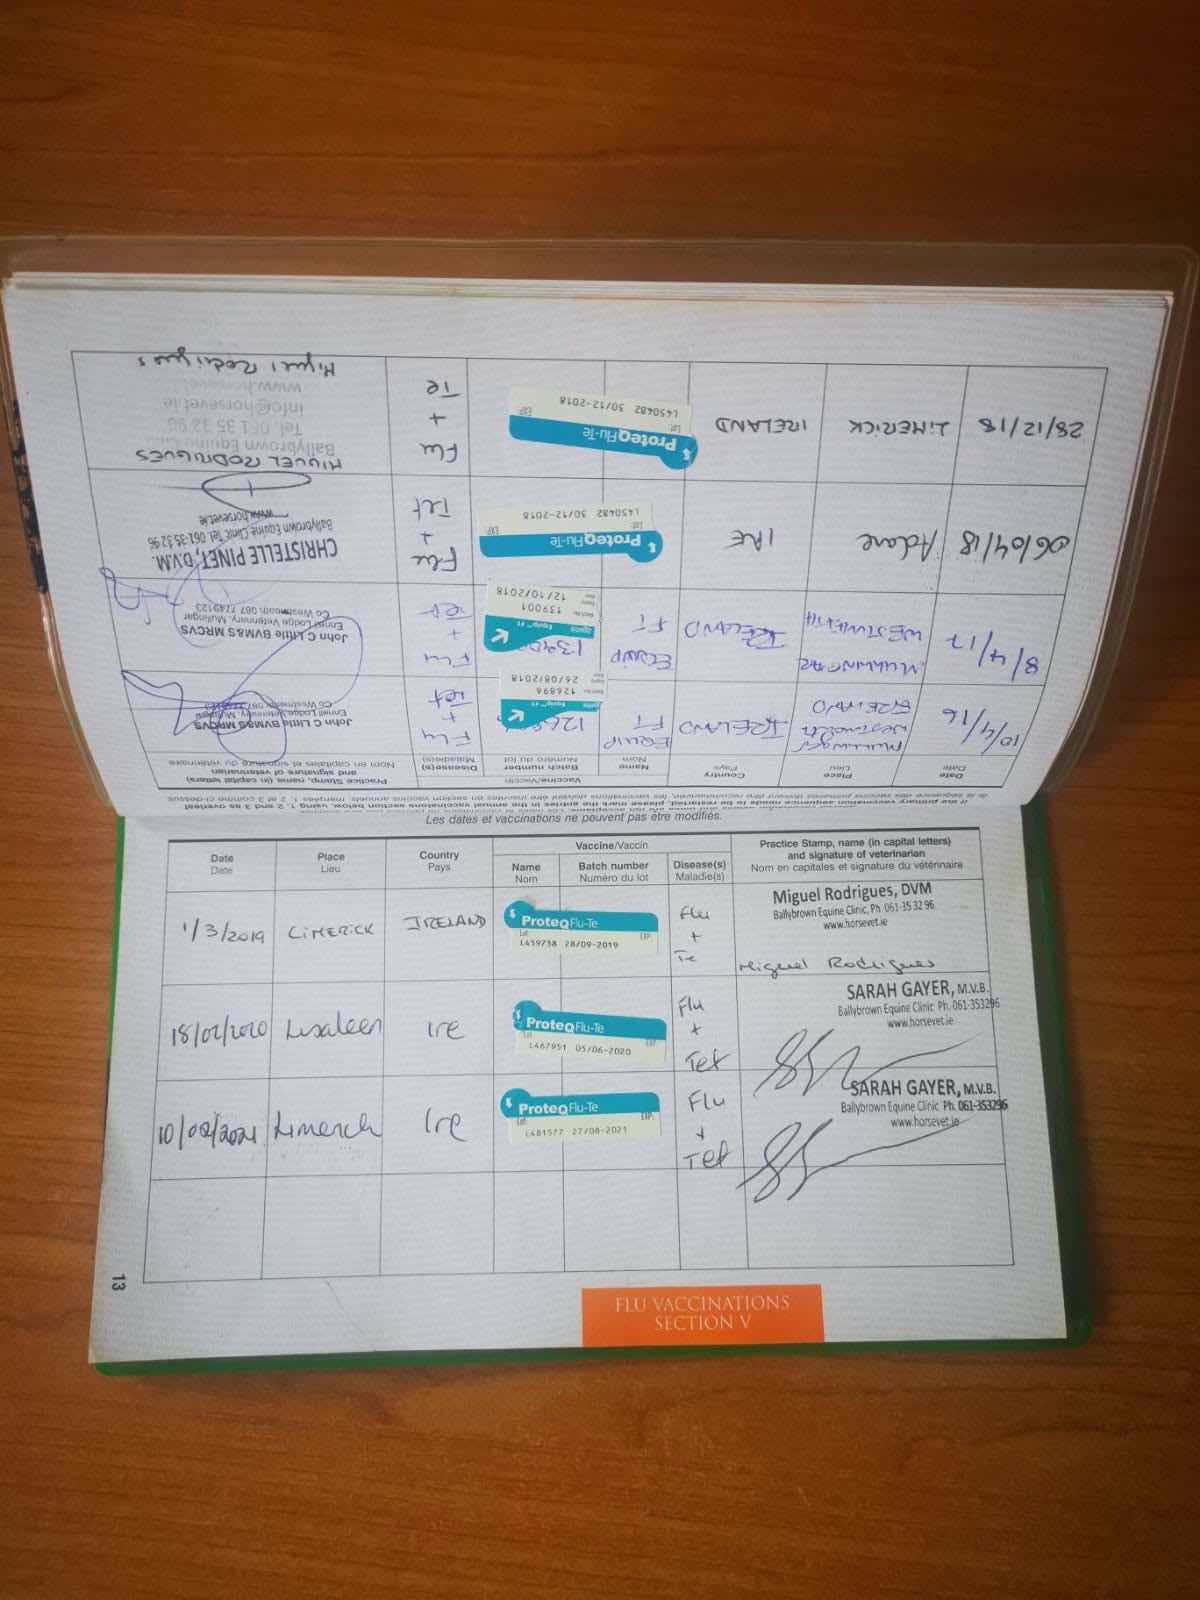 Date
Date
Place
Lieu
Country
Pays
Vaccine/Vaccin
Name
Nom
Batch number
Numéro du lot
Disease(s)
Maladie(s)
Practice Stamp, name (in capital letters)
and signature of veterinarian
Nom en capitales et signature du vétérinaire
10/4/16
MULLINGAR
WESTMEATH
IRELAND
EQUIP
FT
126896
26/08/2018
Flu
+
tet
John C Little BVM&S MRCVS
Ennell Lodge Veterinary, Mullingar
Co Westmeath 087
8/4/17
MULLINGAR
WESTMEATH
IRELAND
EQUIP
FT
139001
12/10/2018
Flu
+
tet
John C Little BVM&S MRCVS
Ennell Lodge Veterinary, Mullingar
Co Westmeath 087 7749123
06/04/18
Adare
IRE
ProteqFlu-Te
Lot
EXP.
L450482 30/12-2018
Flu
+
Tet
CHRISTELLE PINET, D.V.M.
Ballybrown Equine Clinic Tel. 061-35 32 96
www.horsevet.ie
28/12/18
LIMERICK
IRELAND
ProteqFlu-Te
Lot
EXP.
L450482 30/12-2018
Flu
+
Te
MIGUEL RODRIGUES
Ballybrown Equine
Tel. 061 35 32 96
info@horsevet.ie
Miguel Rodrigues
Les dates et vaccinations ne peuvent pas être modifiés.
Date
Date
Place
Lieu
Country
Pays
Vaccine/Vaccin
Name
Nom
Batch number
Numéro du lot
Disease(s)
Maladie(s)
Practice Stamp, name (in capital letters)
and signature of veterinarian
Nom en capitales et signature du vétérinaire
1/3/2019
LIMERICK
IRELAND
ProteqFlu-Te
Lot
EXP.
L459738 28/09-2019
Flu
+
Te
Miguel Rodrigues, DVM
Ballybrown Equine Clinic, Ph. 061-35 32 96
www.horsevet.ie
Miguel Rodrigues
18/02/2020
Lisaleen
Ire
ProteqFlu-Te
L467951 05/06-2020
Flu
+
Tet
SARAH GAYER, M.V.B.
Ballybrown Equine Clinic Ph. 061-353296
www.horsevet.ie
10/02/2021
Limerick
Ire
ProteqFlu-Te
Lot
EXP.
L481577 27/08-2021
Flu
+
Tet
SARAH GAYER, M.V.B.
Ballybrown Equine Clinic Ph. 061-353296
www.horsevet.ie
13
FLU VACCINATIONS
SECTION V